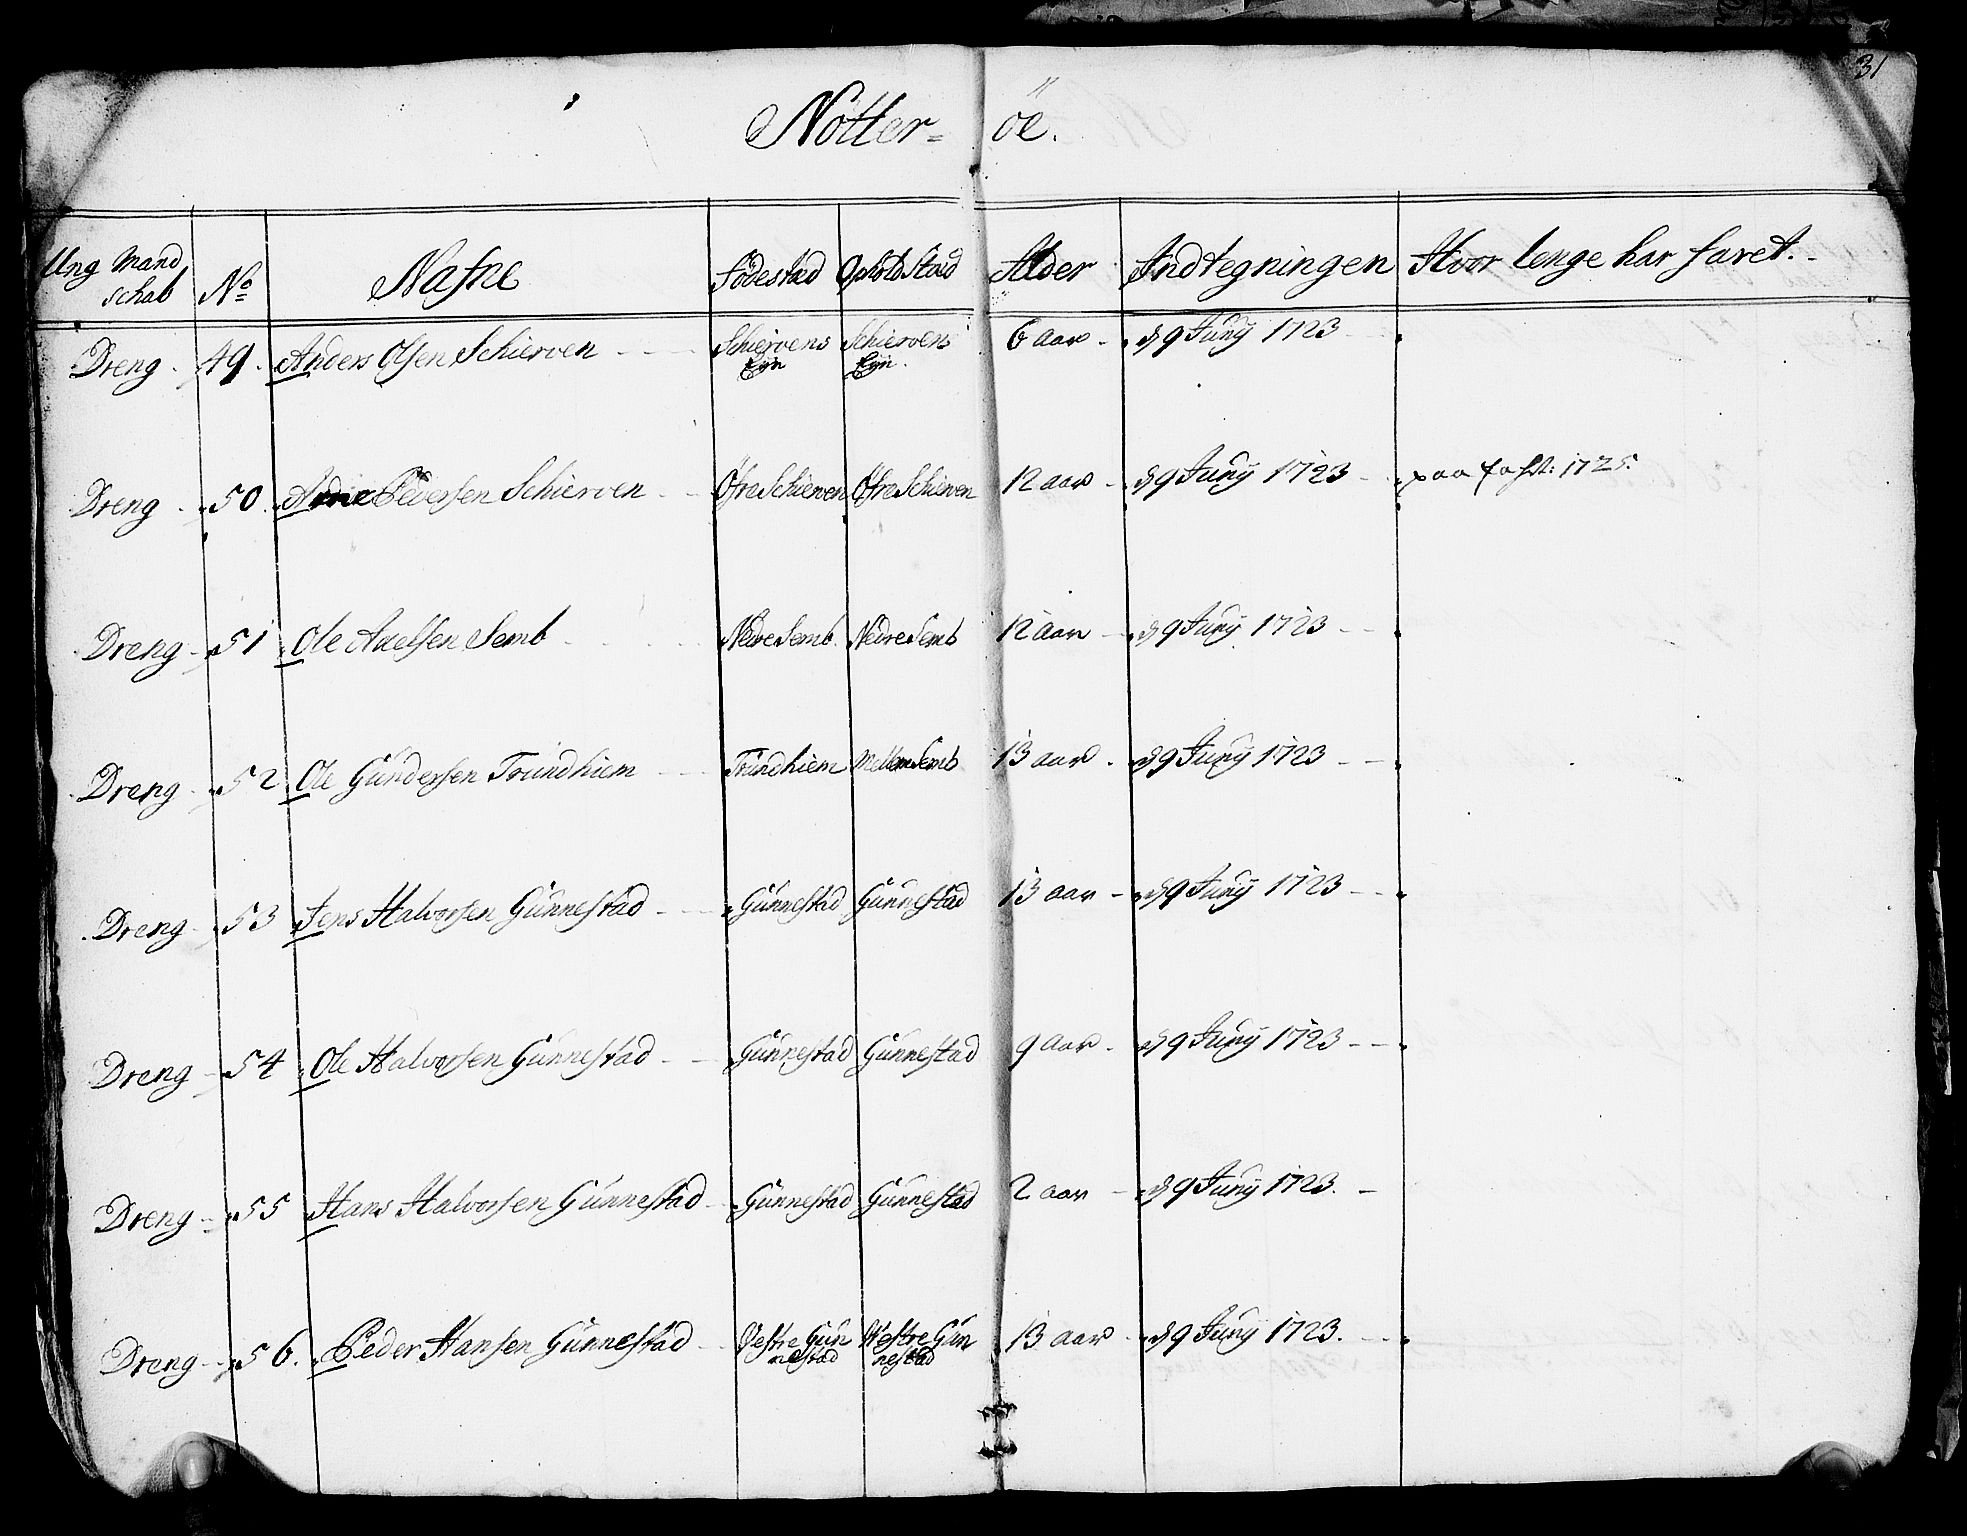 31
Nötter= öe.
Ung Mand schab No Nafne Födestæd Opholds Stæd Alder Indtegningen Hvor lenge har faret.
Dreng 49. Anders Olsen Schierven Schiervens Eÿe Schiervens Eÿe. 6 aar d 9 Junÿ 1723
Dreng 50 Pedersen Schierven Ofre Schierven Ofre Schierven 12 aar d 9 Junÿ 1723 paa 1725.
Dreng 51 Ole Axelsen Semb Nedre Semb Nedre Semb 12 aar d 9 Junÿ 1723
Dreng 52 Ole Gundersen Trundhiem Trundhiem Mellem Semb 13 aar d 9 Junÿ 1723
Dreng 53 Jens Halvorsen Gunnestad Gunnestad Gunnestad 13 aar d 9 Junÿ 1723
Dreng 54 Ole Halvorsen Gunnestad Gunnestad Gunnestad 9 aar d 9 Junÿ 1723
Dreng 55 Hans Halvorsen Gunnestad Gunnestad Gunnestad 2 aar d 9 Junÿ 1723.
Dreng 56. Peder Hansen Gunnestad Vestre Gunnestad Westre Gunnestad 13 aar d 9 Junÿ 1723.